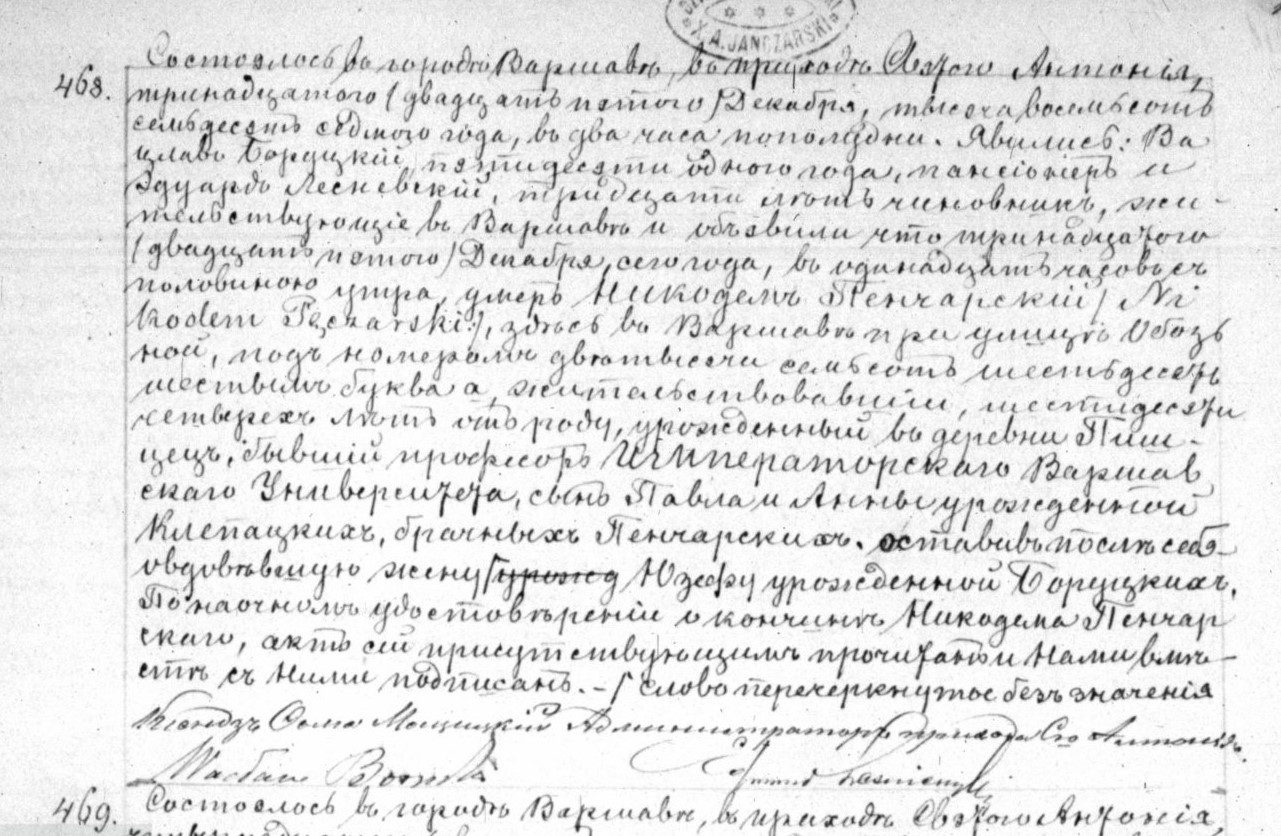 X. A. JANCZARSKI
468.
Состоялось въ городѣ Варшавѣ, въ приходѣ Святого Антонія,
тринадцатого /двадцать пятого/ Декабря, тысяча восемьсотъ
семьдесятъ седмого года, въ два часа пополудни. Явились: Ва
цлавъ Боруцкій, пятидесяти одного года, пансіонеръ и
Эдуардъ Лесневскій, тридцати лѣтъ чиновникъ, жи-
тельствующіе въ Варшавѣ и объявили что тринадцатого
/двадцать пятого/ Декабря, сего года, въ одинадцать часовъ съ
половиною утра, умеръ Никодемъ Пенчарскій / Ni
kodem Pęczarski /, здѣсь въ Варшавѣ при улицѣ Обозъ
ной, подъ номеромъ двѣтысячи семьсотъ шестьдесятъ
шестымъ буква а, жительствовавшій, шестидесяти
четырехъ лѣтъ отъ роду, урожденный въ деревни Пиш-
цецъ, бывшій професоръ Императорскаго Варшав
скаго Университета, сынъ Павла и Анны урожденной
Клепацкихъ, брачныхъ Пенчарскихъ. оставивъ послѣ себя
овдовѣвшую жену /урожд Юзефу урожденной Боруцкихъ.
По наочномъ удостовѣреніи о кончинѣ Никодема Пенчар
скаго, актъ сей присутствующимъ прочитанъ и Нами вмѣ-
стѣ съ Ними подписанъ. - / слово перечеркнутое безъ значенія
Ксендзъ Администраторъ прихода Св. Антонія.
469. Состоялось въ городѣ Варшавѣ, въ приходѣ Святого Антонія